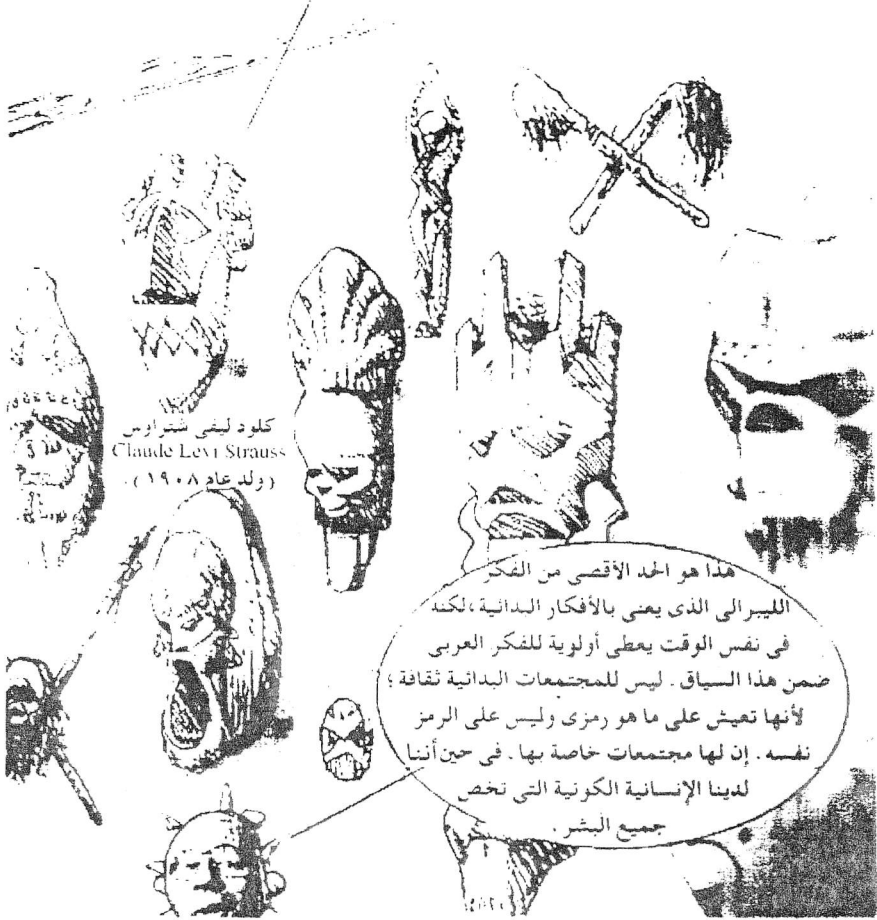 كلود ليفى شتراوس
Claude Levi Strauss
(ولد عام ١٩٠٨).
هذا هو الحد الأقصى من الفكر
الليبرالى الذى يعنى بالأفكار البدائية،لكنه
فى نفس الوقت يعطى أولوية للفكر العربى
ضمن هذا السياق. ليس للمجتمعات البدائية ثقافة ؛
لأنها تعيش على ما هو رمزى وليس على الرمز
نفسه. إن لها مجتمعات خاصة بها. فى حين أننا
لدينا الإنسانية الكونية التى تخص
جميع البشر.